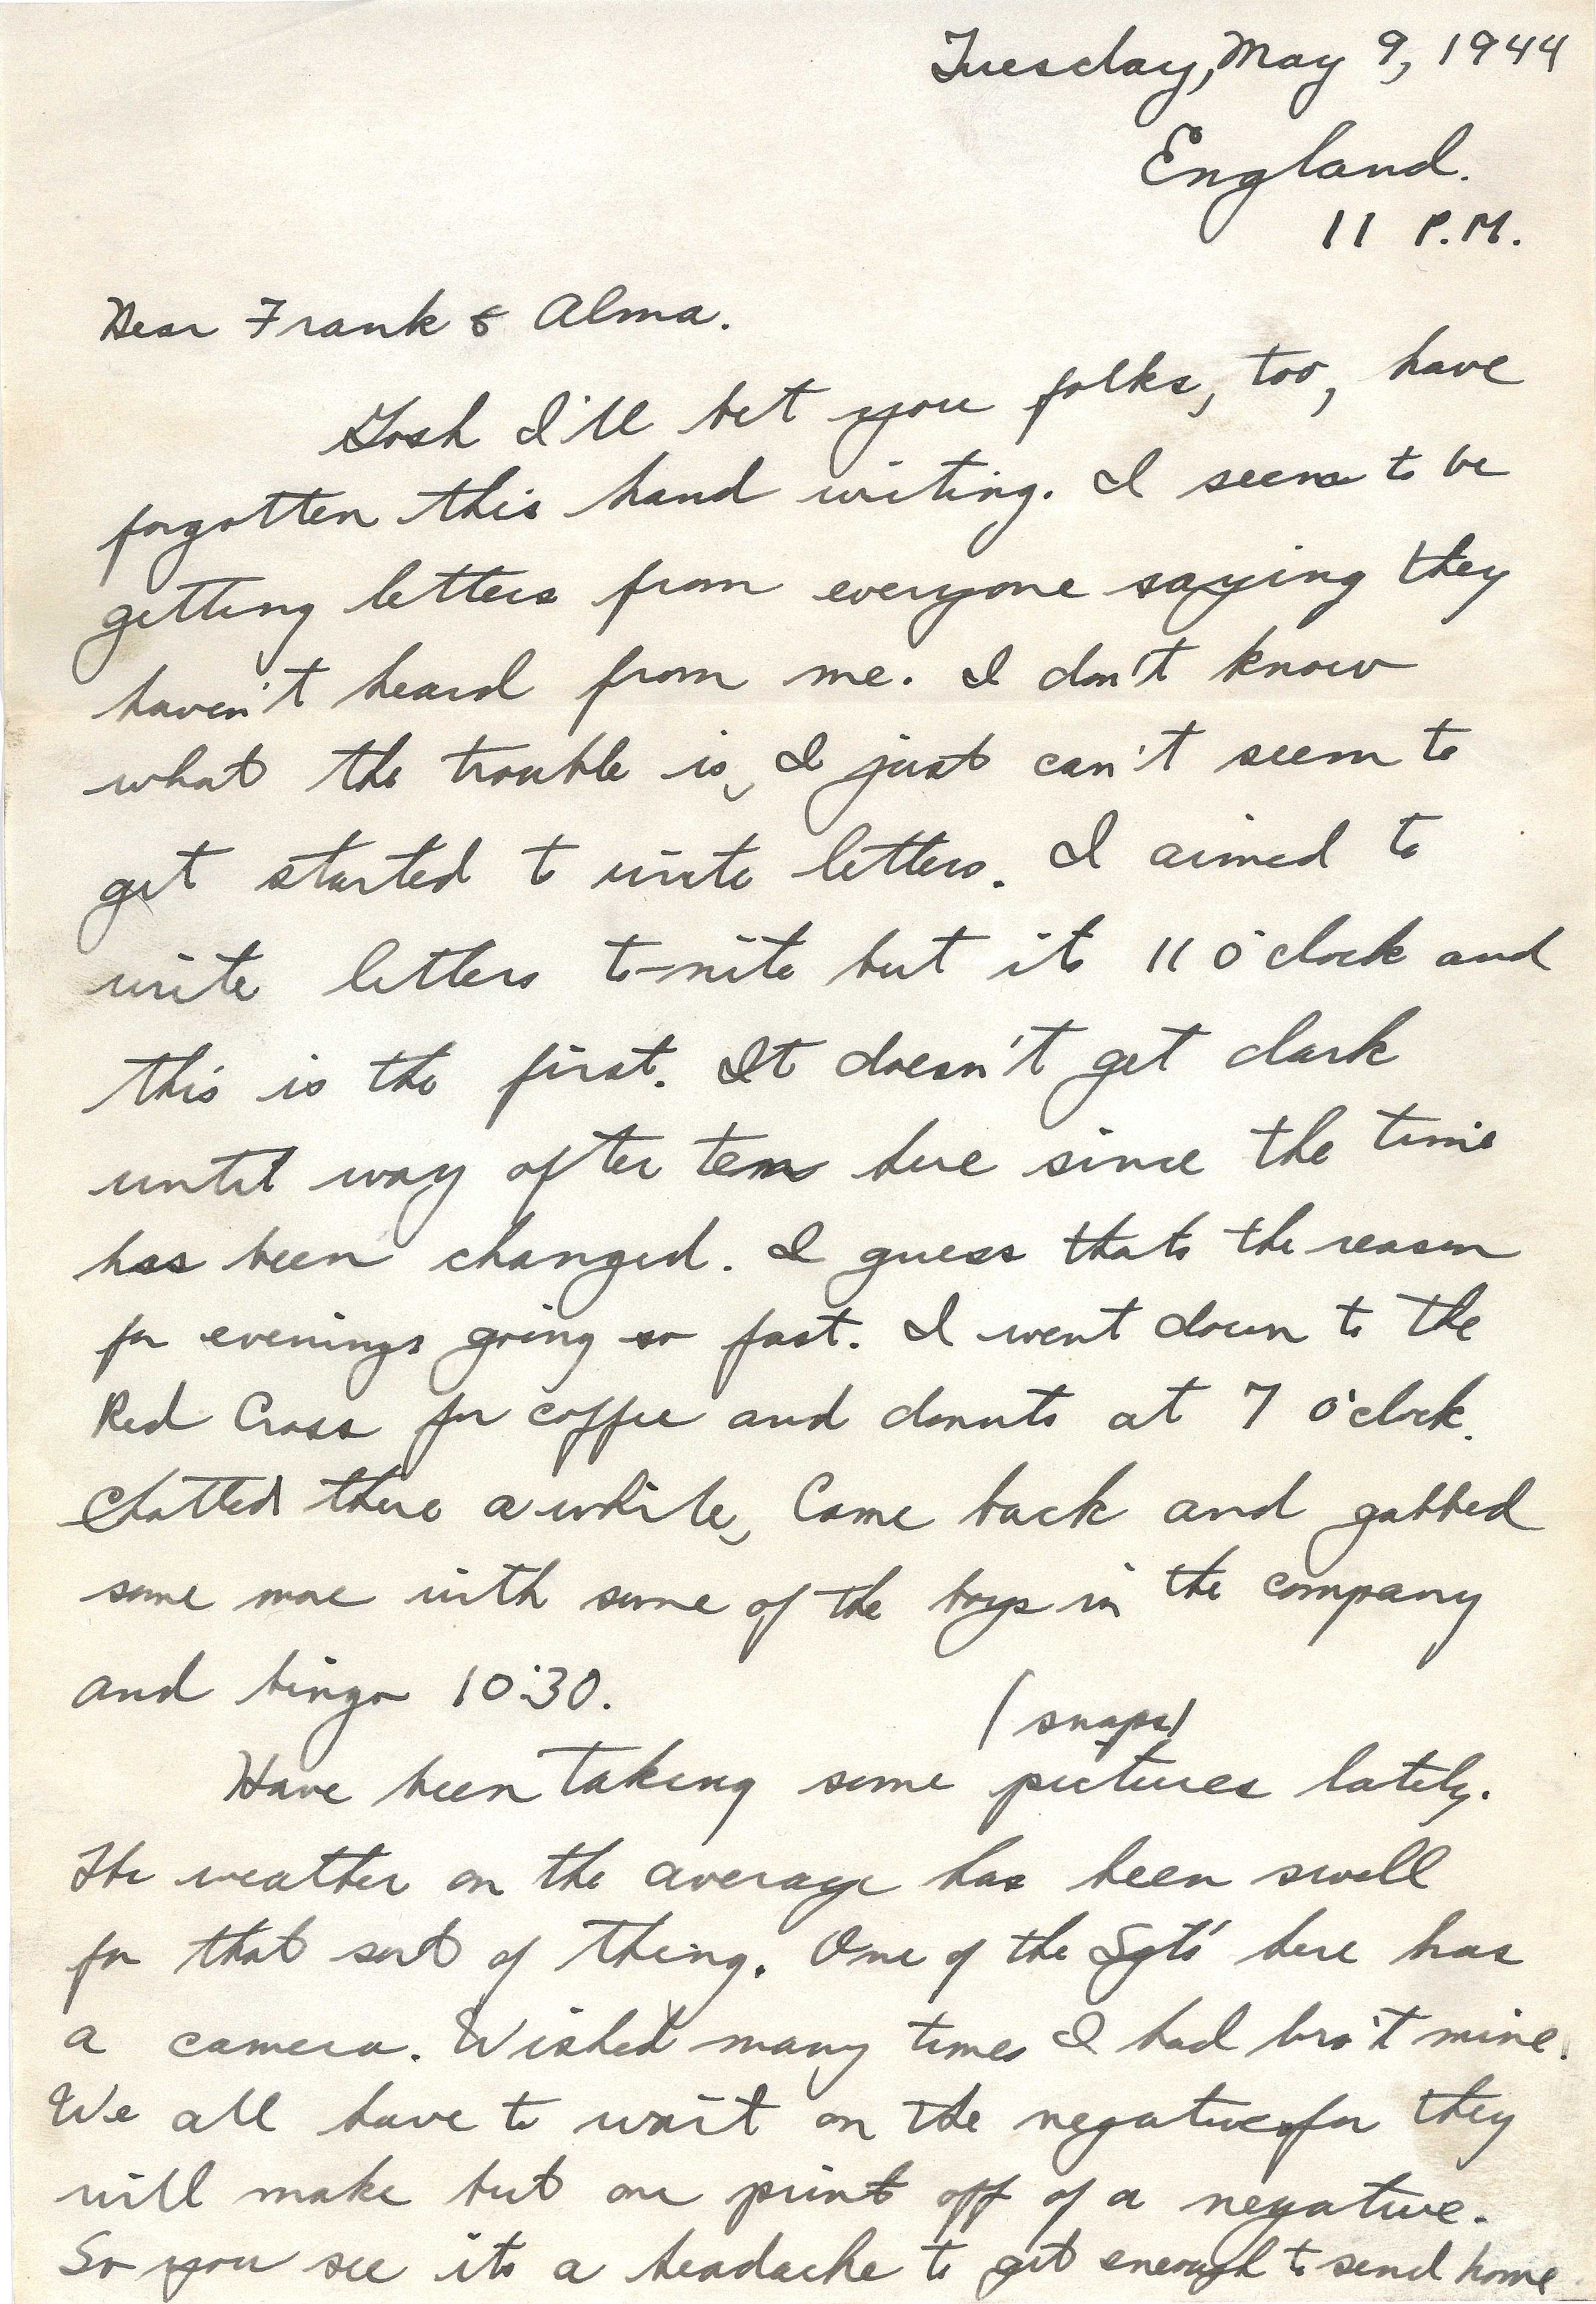 Tuesday, May 9, 1944
England.
11 P.M.
Dear Frank & Alma.
Gosh I'll bet you folks, too, have
forgotten this hand writing. I seem to be
getting letters from everyone saying they
haven't heard from me. I don't know
what the trouble is, I just can't seem to
get started to write letters. I aimed to
write letters to-nite but its 11 o'clock and
this is the first. It doesn't get dark
until way after ten here since the time
has been changed. I guess thats the reason
for evenings going so fast. I went down to the
Red Cross for coffee and donuts at 7 o'clock.
Chatted there a while, Came back and gabbed
some more with some of the boys in the company
and bingo 10:30.
(snaps)
Have been taking some pictures lately.
The weather on the average has been swell
for that sort of thing. One of the Sgts' here has
a camera. Wished many times I had bro't mine.
We all have to wait on the negatives for they
will make but one print off of a negative.
So you see its a headache to get enough to send home